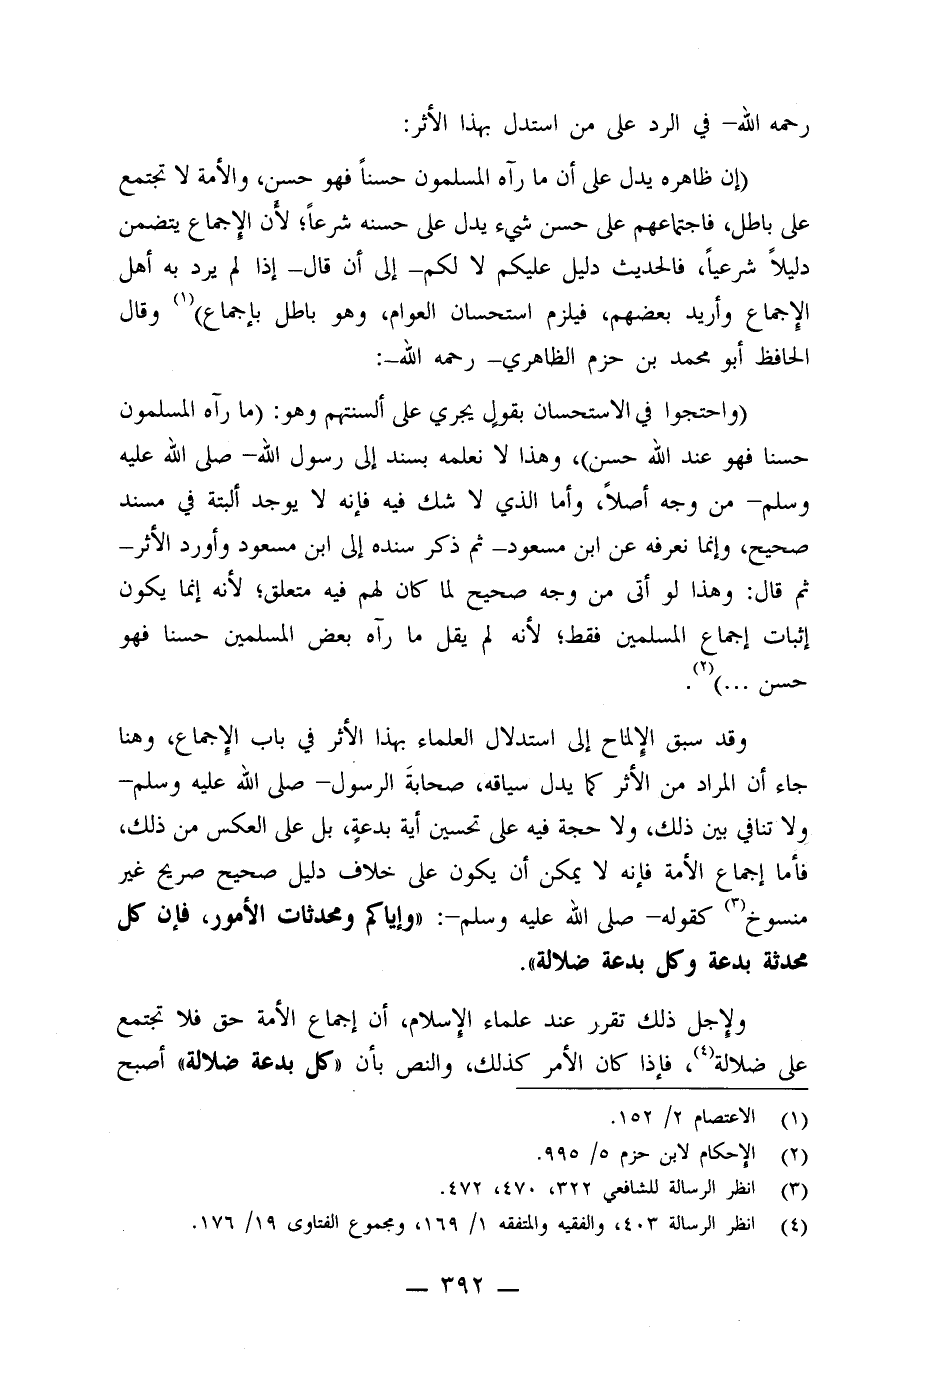 رحمه الله– في الرد على من استدل بهذا الأثر:
(إن ظاهره يدل على أن ما رآه المسلمون حسناً فهو حسن، والأمة لا تجتمع
على باطل، فاجتماعهم على حسن شيء يدل على حسنه شرعاً؛ لأن الإجماع يتضمن
دليلاً شرعياً، فالحديث دليل عليكم لا لكم– إلى أن قال– إذا لم يرد به أهل
الإجماع وأريد بعضهم، فيلزم استحسان العوام، وهو باطل بإجماع)(١) وقال
الحافظ أبو محمد بن حزم الظاهري– رحمه الله–:
(واحتجوا في الاستحسان بقولٍ يجري على ألسنتهم وهو: (ما رآه المسلمون
حسنا فهو عند الله حسن)، وهذا لا نعلمه بسند إلى رسول الله– صلى الله عليه
وسلم– من وجه أصلاً، وأما الذي لا شك فيه فإنه لا يوجد ألبتة في مسند
صحيح، وإنما نعرفه عن ابن مسعود– ثم ذكر سنده إلى ابن مسعود وأورد الأثر–
ثم قال: وهذا لو أتى من وجه صحيح لما كان لهم فيه متعلق؛ لأنه إنما يكون
إثبات إجماع المسلمين فقط؛ لأنه لم يقل ما رآه بعض المسلمين حسنا فهو
حسن ...)(٢).
وقد سبق الإلماح إلى استدلال العلماء بهذا الأثر في باب الإجماع، وهنا
جاء أن المراد من الأثر كما يدل سياقه، صحابةَ الرسول– صلى الله عليه وسلم–
ولا تنافي بين ذلك، ولا حجة فيه على تحسين أية بدعةٍ، بل على العكس من ذلك،
فأما إجماع الأمة فإنه لا يمكن أن يكون على خلاف دليل صحيح صريح غير
منسوخ(٣) كقوله– صلى الله عليه وسلم–: «وإياكم ومحدثات الأمور، فإن كل
محدثة بدعة وكل بدعة ضلالة».
ولإجل ذلك تقرر عند علماء الإسلام، أن إجماع الأمة حق فلا تجتمع
على ضلالة(٤)، فإذا كان الأمر كذلك، والنص بأن «كل بدعة ضلالة» أصبح
(١) الاعتصام ٢/ ١٥٢.
(٢) الإحكام لابن حزم ٥/ ٩٩٥.
(٣) انظر الرسالة للشافعي ٣٢٢، ٤٧٠، ٤٧٢.
(٤) انظر الرسالة ٤٠٣، والفقيه والمتفقه ١/ ١٦٩، ومجموع الفتاوى ١٩/ ١٧٦.
– ٣٩٢ –